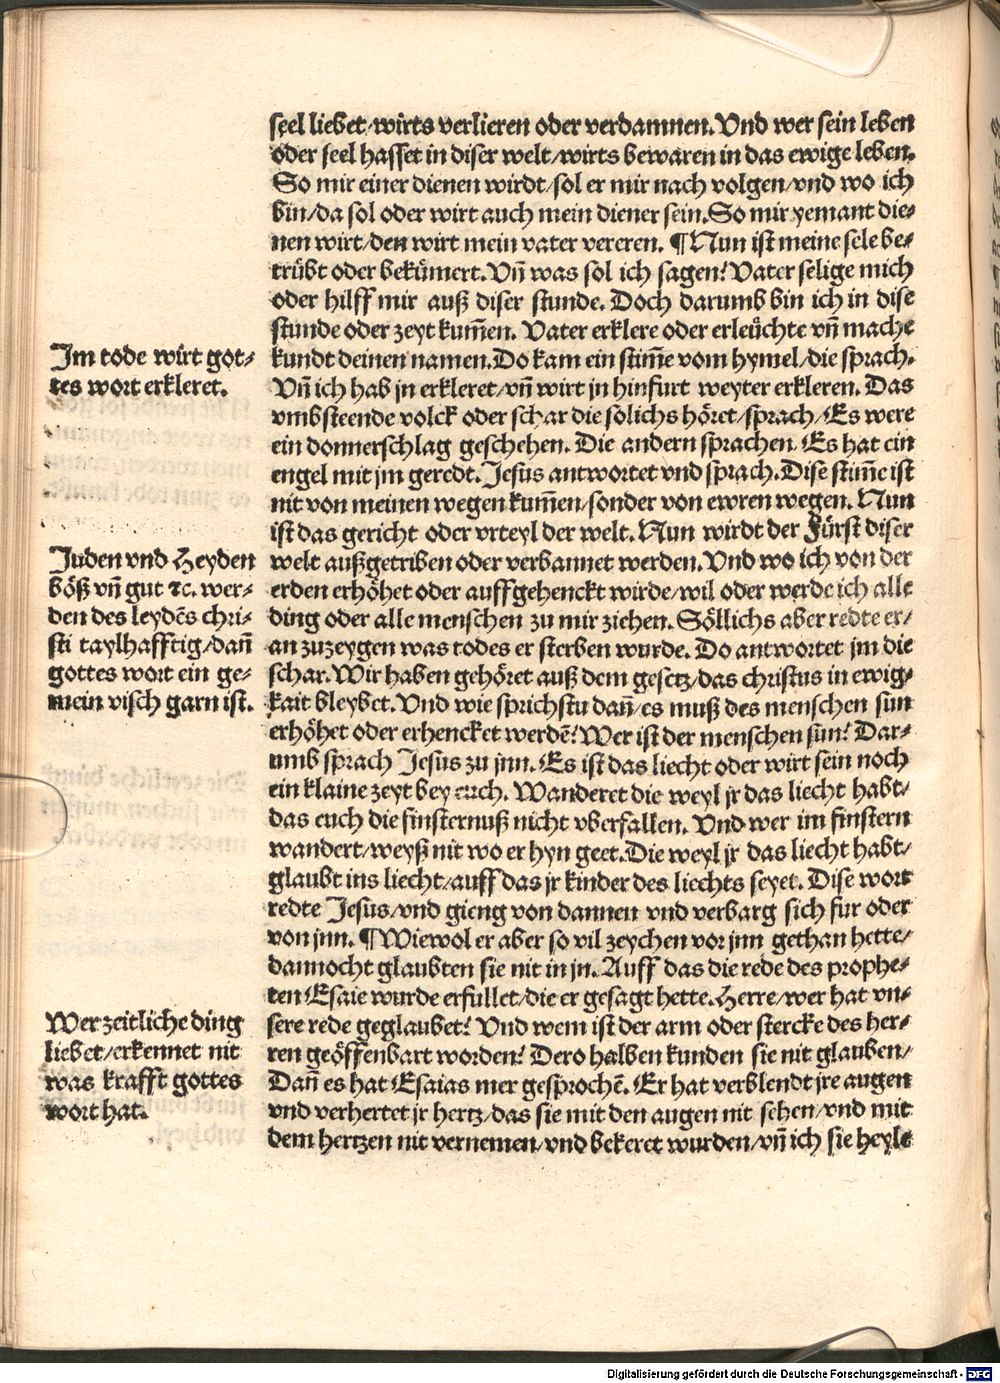 seel liebet/wirts verlieren oder verdamnen. Vnd wer sein leben
oder seel hasset in diser welt/wirts bewaren in das ewige leben.
So mir einer dienen wirdt/sol er mir nach volgen/vnd wo ich
bin/da sol oder wirt auch mein diener sein. So mir yemant die-
nen wirt/den wirt mein vater vereren. ¶ Nun ist meine sele be-
trübt oder bekümert. Vñ was sol ich sagen? Vater selige mich
oder hilff mir auß diser stunde. Doch darumb bin ich in dise
stunde oder zeyt kum̃en. Vater erklere oder erleüchte vñ mache
kundt deinen namen. Do kam ein stim̃e vom hymel/die sprach.
Vñ ich hab jn erkleret/vñ wirt jn hinfurt weyter erkleren. Das
vmbsteende volck oder schar die solichs höret/sprach/Es were
ein donnerschlag geschehen. Die andern sprachen. Es hat ein
engel mit jm geredt. Jesus antwortet vnd sprach. Dise stim̃e ist
nit von meinen wegen kum̃en/sonder von ewren wegen. Nun
ist das gericht oder vrteyl der welt. Nun wirdt der Fürst diser
welt außgetriben oder verbannet werden. Vnd wo ich von der
erden erhöhet oder auffgehenckt wirde/wil oder werde ich alle
ding oder alle menschen zu mir ziehen. Söllichs aber redte er/
an zuzeygen was todes er sterben wurde. Do antwortet jm die
schar. Wir haben gehöret auß dem gesetz/das christus in ewig-
kait bleybet. Vnd wie sprichstu dañ/es muß des menschen sun
erhöhet oder erhencket werdẽ? Wer ist der menschen sun? Dar-
umb sprach Jesus zu jnn. Es ist das liecht oder wirt sein noch
ein klaine zeyt bey euch. Wanderet die weyl jr das liecht habt/
das euch die finsternuß nicht vberfallen. Vnd wer im finstern
wandert/weyß nit wo er hyn geet. Die weyl jr das liecht habt/
glaubt ins liecht/auff das jr kinder des liechts seyet. Dise wort
redte Jesus/vnd gieng von dannen vnd verbarg sich fur oder
von jnn. ¶ Wiewol er aber so vil zeychen vor jnn gethan hette/
dannocht glaubten sie nit in jn. Auff das die rede des prophe-
ten Esaie wurde erfullet/die er gesagt hette. Herre/wer hat vn-
sere rede geglaubet? Vnd wem ist der arm oder stercke des her-
ren geöffenbart worden? Dero halben kunden sie nit glauben/
Dañ es hat Esaias mer gesprochẽ. Er hat verblendt jre augen
vnd verhertet jr hertz/das sie mit den augen nit sehen/vnd mit
dem hertzen nit vernemen/vnd bekeret wurden/vñ ich sie heyle
Im tode wirt got-
tes wort erkleret.
Juden vnd Heyden
böß vñ gut ⁊c. wer-
den des leydẽs chri-
sti taylhafftig/dañ
gottes wort ein ge-
mein visch garn ist.
Wer zeitliche ding
liebet/erkennet nit
was krafft gottes
wort hat.
Digitalisierung gefördert durch die Deutsche Forschungsgemeinschaft - DFG